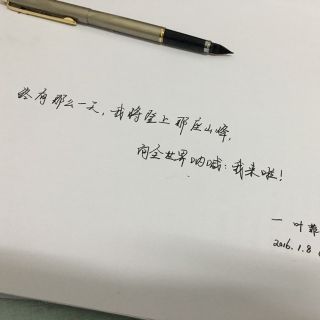 终有那么一天，我将登上那座山峰，
向全世界呐喊：我来啦！
一叶菲
2016.1.8